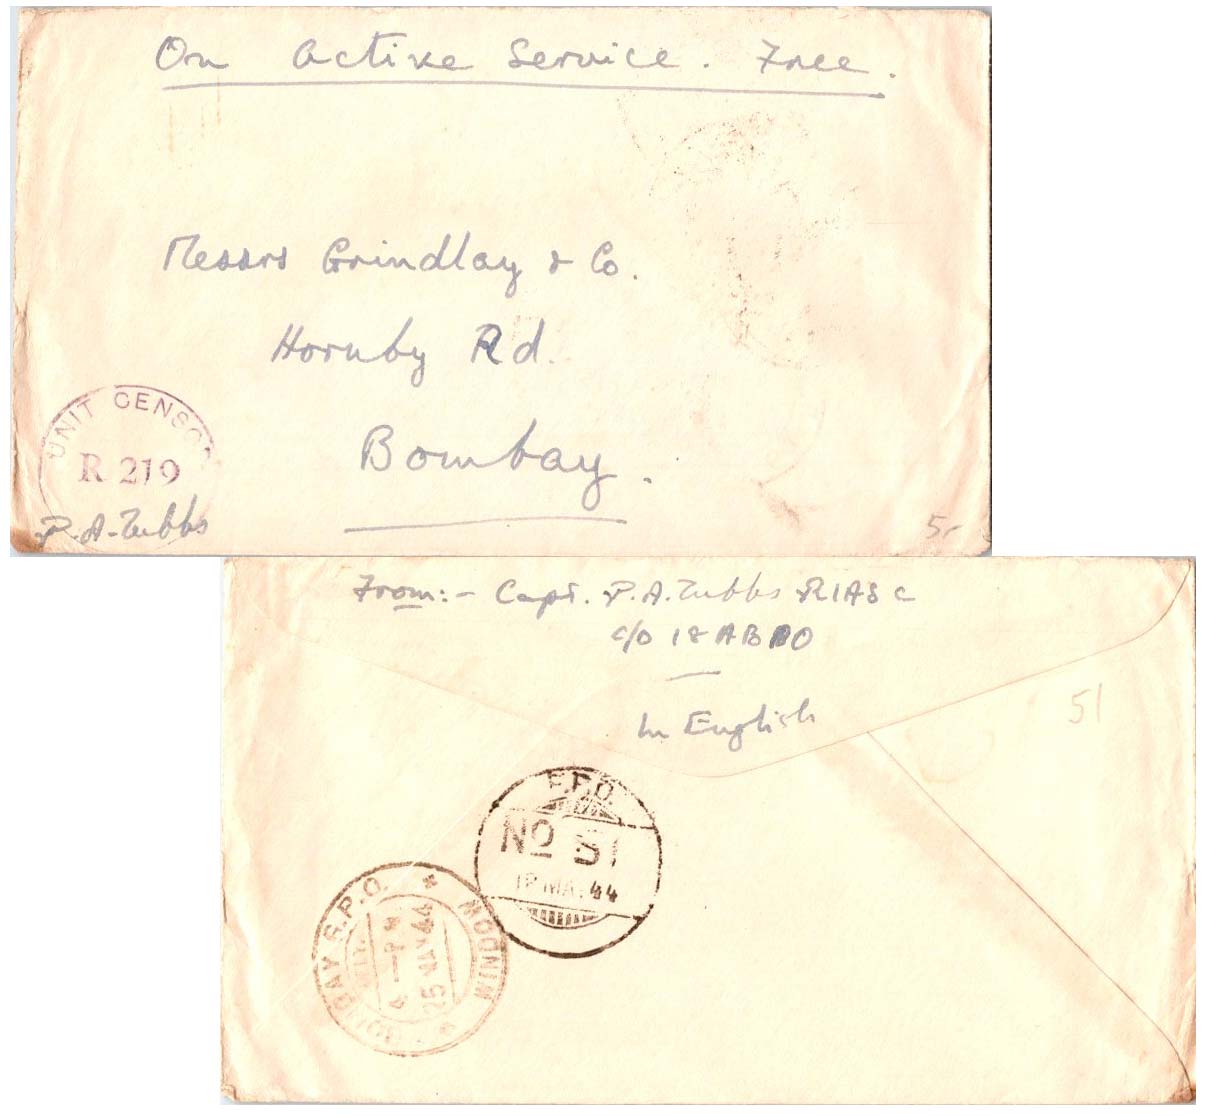 On Active Service. Free.
Messrs Grindlay & Co.
Hornby Rd.
Bombay.
UNIT CENSO
R 219
P. A. Tubbs
5/-
From:- Capt. P. A. Tubbs RIASC
c/o 18 ABPO
In English
51
F.P.O.
No 51
MA 44
BOMBAY G.P.O.
WINDOW
4 - P M
25 MAY 44